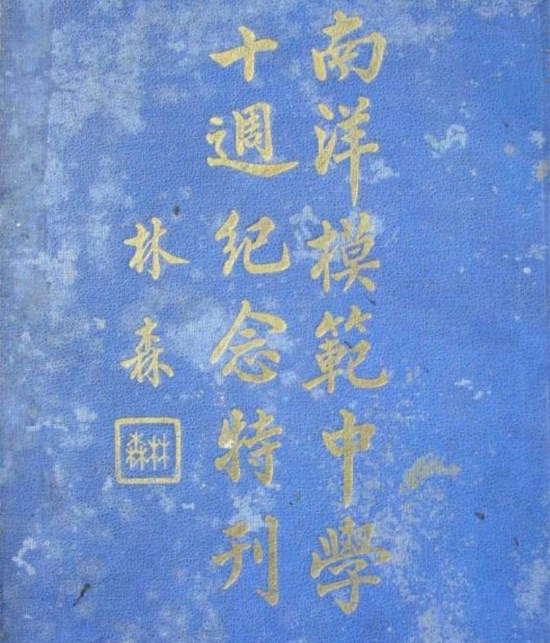 南洋模範中學
十週紀念特刊
林森
林森